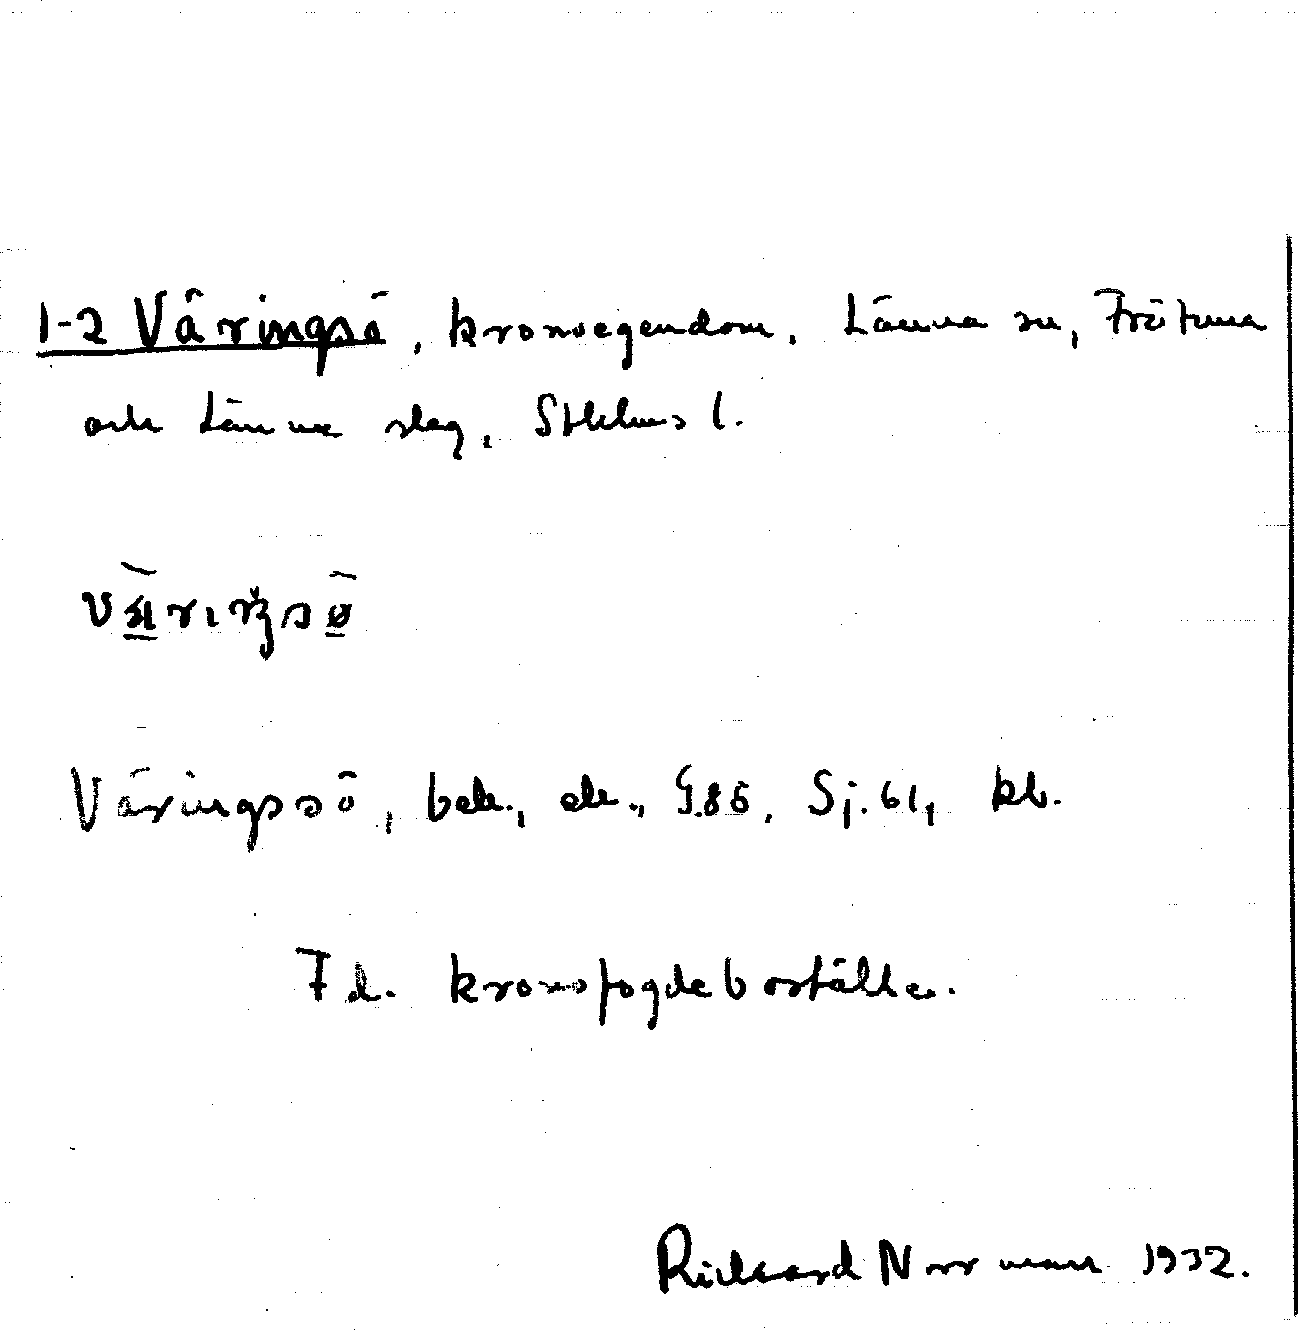 1-2 Väringsö, kronoegendom, Länna sn, Frötuna
och Länna slag, Sthlms l.
Väringsö, bek., ek., G.86, Sj.61, kb.
F d. kronofogdeboställe.
Rickard Norrman 1932.